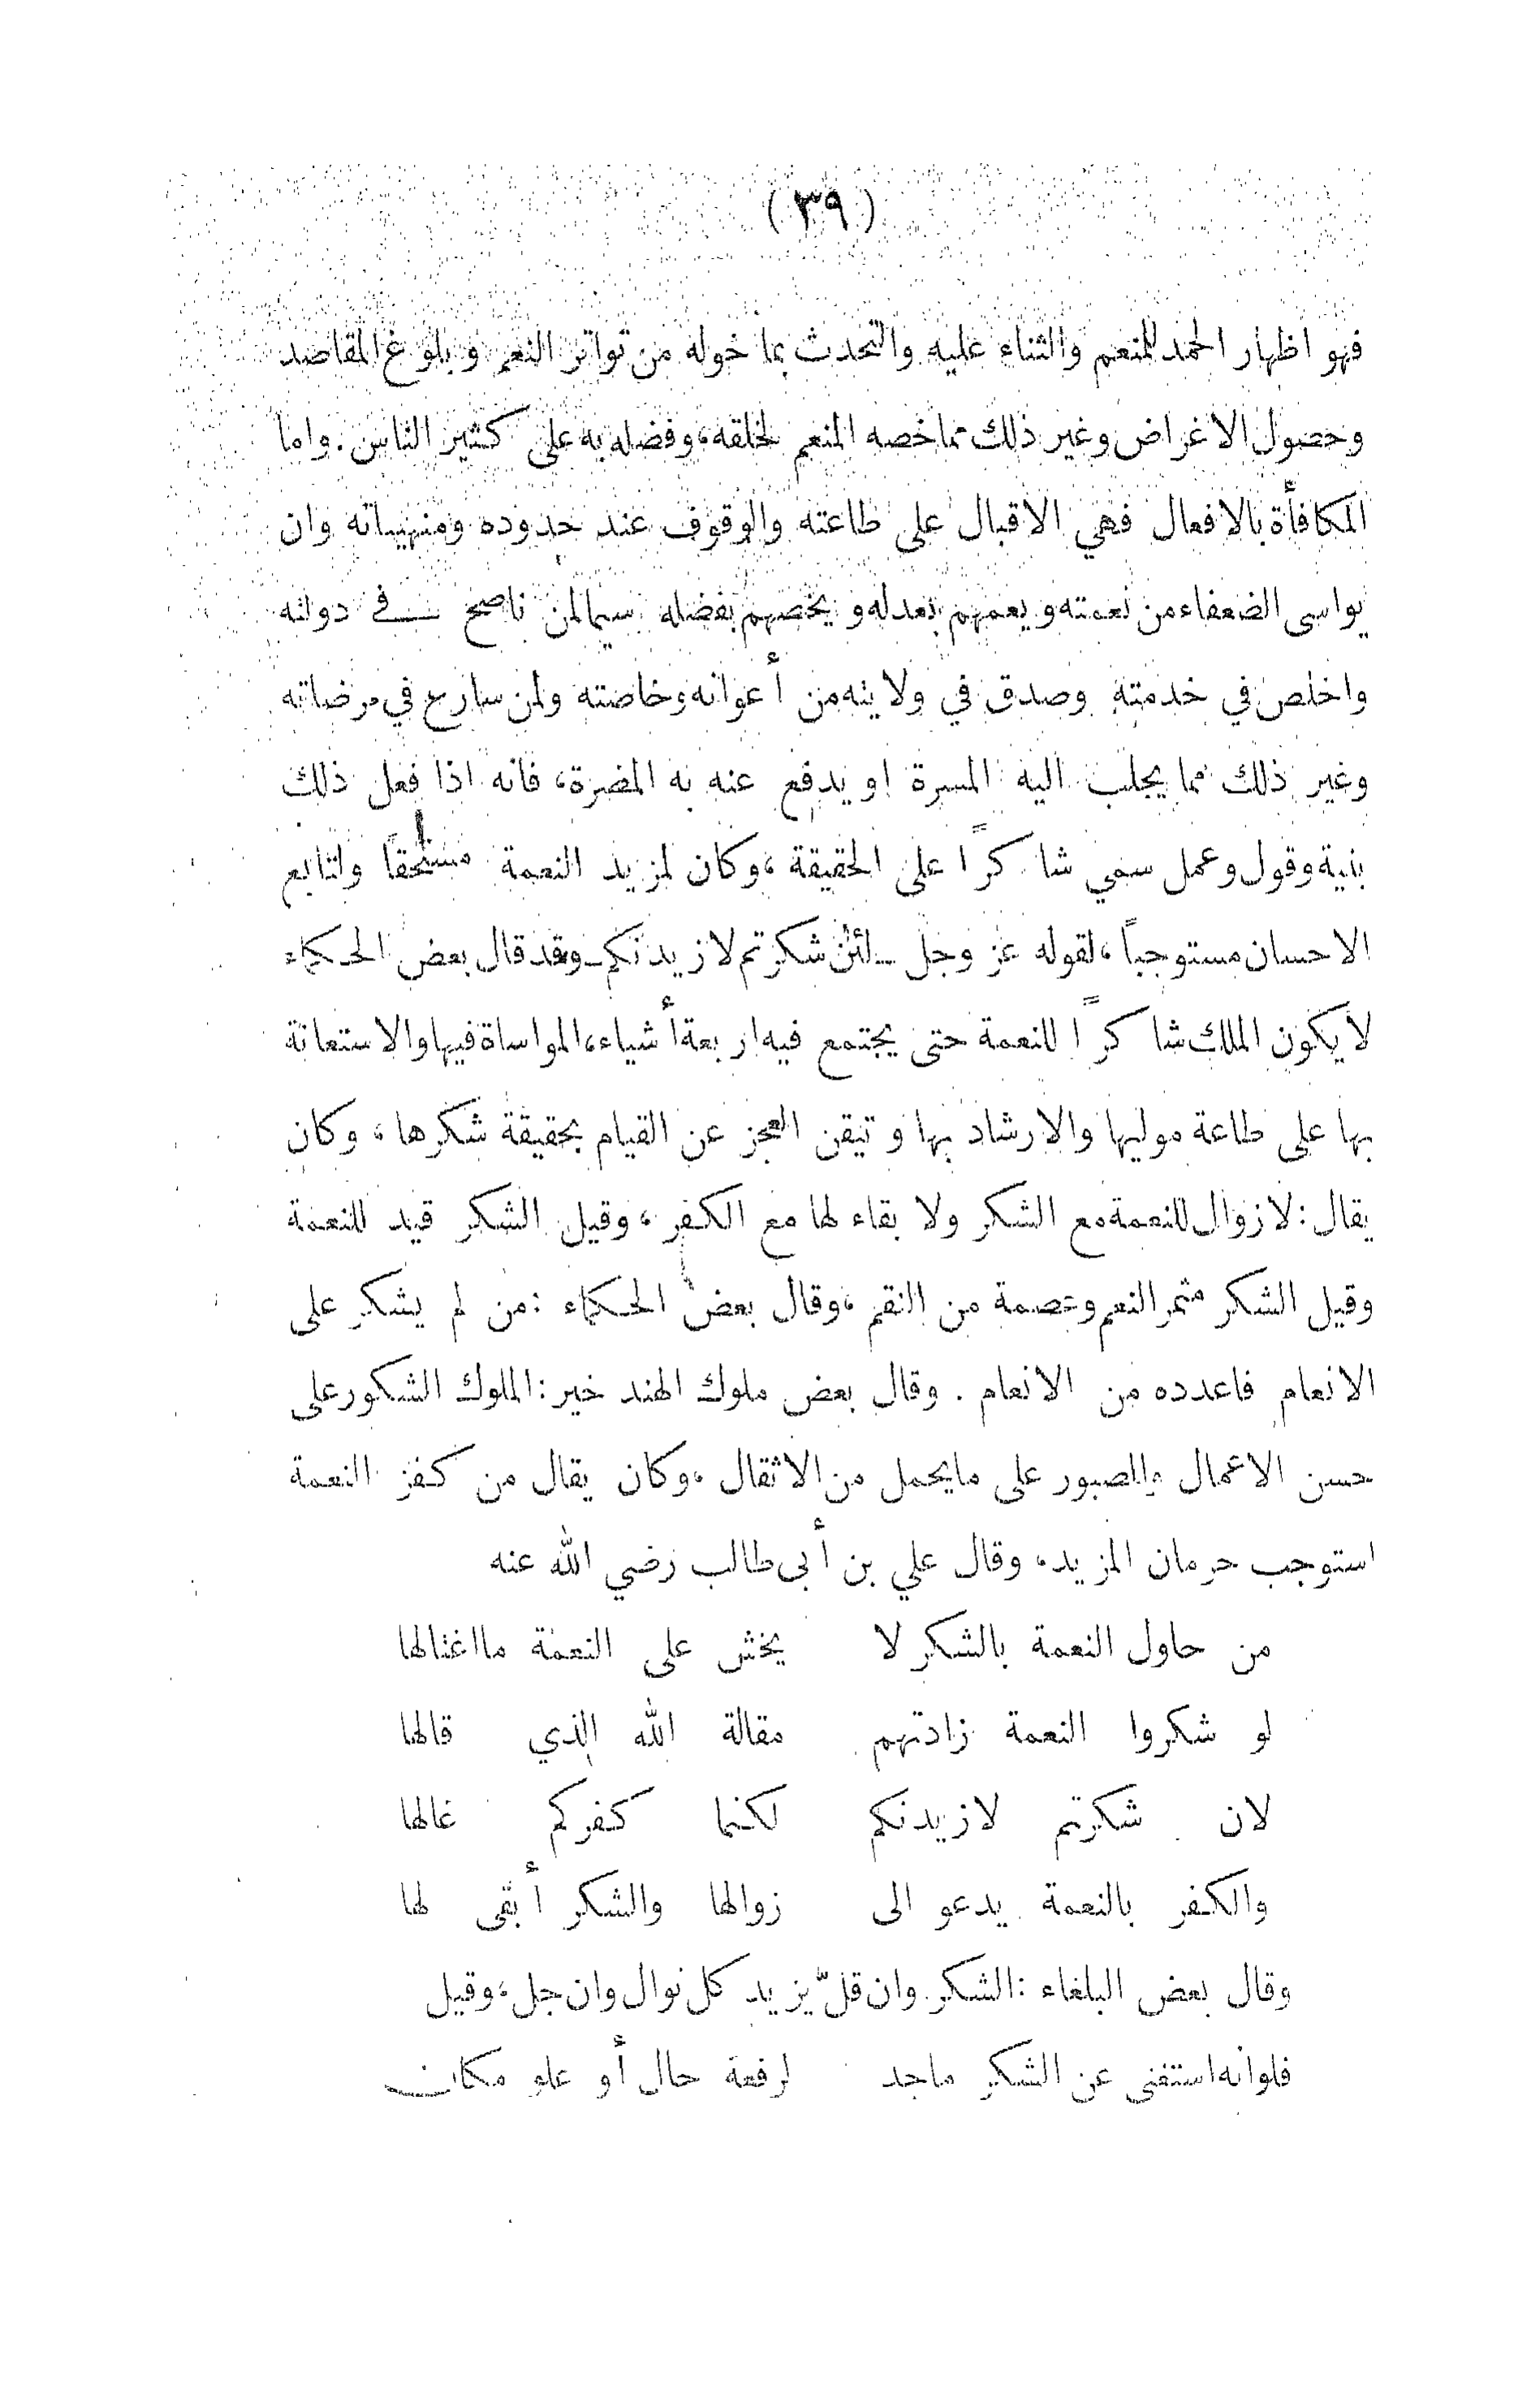 (٣٩)
فهو اظهار الحمد للمنعم والثناء عليه والتحدث بما خوله من تواتر النعم وبلوغ المقاصد
وحصول الاغراض وغير ذلك مما خصه المنعم لخلقه، وفضله به على كثير الناس. واما
المكافأة بالافعال فهي الاقبال على طاعته والوقوف عند حدوده ومنهيباته وان
يواسى الضعفاء من نعمته ويعمهم بعدله ويخصهم بفضله سيما لمن ناصح في دولته
واخلص في خدمته وصدق في ولايته من أعوانه وخاصته ولمن سارع في مرضاته
وغير ذلك مما يجلب اليه المسرة او يدفع عنه به المضرة، فانه اذا فعل ذلك
بنية وقول وعمل سمي شاكراً على الحقيقة، وكان لمزيد النعمة مستحقاً ولتابع
الاحسان مستوجباً، لقوله عز وجل ـ لئن شكرتم لازيدنكم ـ وقد قال بعض الحكماء
لا يكون الملك شاكراً للنعمة حتى يجتمع فيه اربعة أشياء، المواساة فيها والاستعانة
بها على طاعة موليها والارشاد بها وتيقن العجز عن القيام بحقيقة شكرها، وكان
يقال: لا زوال للنعمة مع الشكر ولا بقاء لها مع الكفر، وقيل الشكر قيد للنعمة
وقيل الشكر مثمر النعم وعصمة من النقم، وقال بعض الحكماء: من لم يشكر على
الانعام فاعدده من الانعام. وقال بعض ملوك الهند خير: الملوك الشكور على
حسن الاعمال والصبور على ما يحمل من الاثقال، وكان يقال من كفر النعمة
استوجب حرمان المزيد، وقال علي بن أبى طالب رضي الله عنه
من حاول النعمة بالشكر لا يخش على النعمة ما اغتالها
لو شكروا النعمة زادتهم مقالة الله الذي قالها
لان شكرتم لازيدنكم لكنما كفركم غالها
والكفر بالنعمة يدعو الى زوالها والشكر أبقى لها
وقال بعض البلغاء: الشكر وان قلّ يزيد كل نوال وان جل، وقيل
فلوانه استغنى عن الشكر ماجد لرفعة حال أو علو مكان